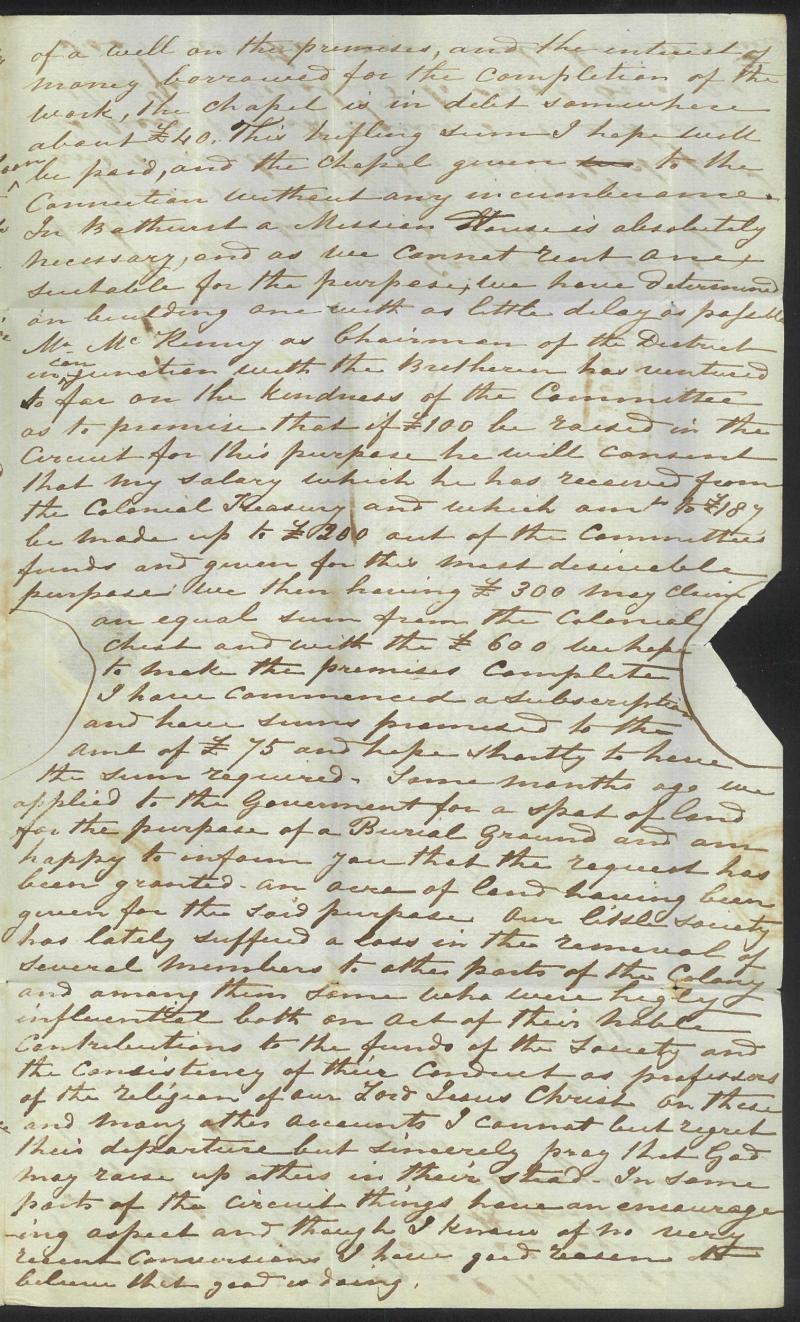 of a well on the premises, and the interest of
money borrowed for the completion of the
work, the chapel is in debt somewhere
about £40. This trifling sum I hope will
soon
be paid, and the chapel given to the
Connection without any incumberance.
In Bathurst a Mission House is absolutely
necessary, and as we cannot rent one,
suitable for the purpose, we have determined
on building one with as little delay as possible
Mr. McKenny as Chairman of the District
in conjunction with the Bretheren has ventured
so far on the kindness of the Committee
as to promise that if £100 be raised in the
Circuit for this purpose he will consent
that my salary which he has received from
the Colonial Treasury and which amt. to £187
be made up to £200 out of the Committee's
funds and given for this most desireable
purpose: we then having £300 may claim
an equal sum from the Colonial
chest and with the £600 we hope
to make the premises complete
I have commenced a subscription
and have sums promised to the
amt of £75 and hope shortly to have
the sum required. Some months ago we
applied to the Goverment for a spot of land
for the purpose of a Burial Ground and am
happy to inform you that the request has
been granted - an acre of land having been
given for the said purpose. Our little society
has lately suffered a loss in the removal of
several members to other parts of the Colony
and among them some who were higly
influential both on act of their noble
Contributions to the funds of the Society and
the consistency of their conduct as professors
of the religion of our Lord Jesus Christ on these
and many other accounts I cannot but regret
their departure but sincerely pray that God
may raise up others in their stead - In some
parts of the circuit things have an encourage
-ing aspect and though I know of no very
recent Conversions I have good reason to
believe that good is doing.